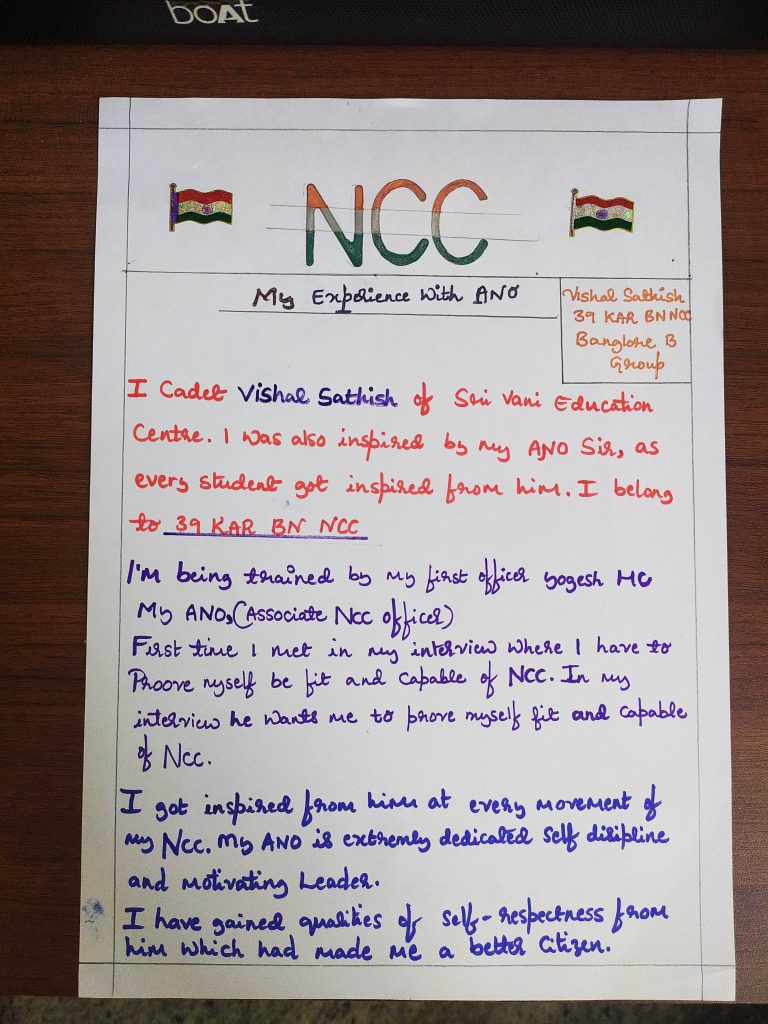 boAt
NCC
My Experience With ANO
Vishal Sathish
39 KAR BN NCC
Banglore B
Group
I Cadet Vishal Sathish of Sri Vani Education
Centre. I was also inspired by my ANO Sir, as
every student got inspired from him. I belong
to 39 KAR BN NCC
I'm being trained by my first officer yogesh MC
My ANO, (Associate NCC officer)
First time I met in my interview where I have to
Proove myself be fit and capable of NCC. In my
interview he wants me to prove myself fit and capable
of NCC.
I got inspired from him at every movement of
my NCC. My ANO is extremly dedicated self disipline
and motivating Leader.
I have gained qualities of self-respectness from
him which had made me a better Citizen.